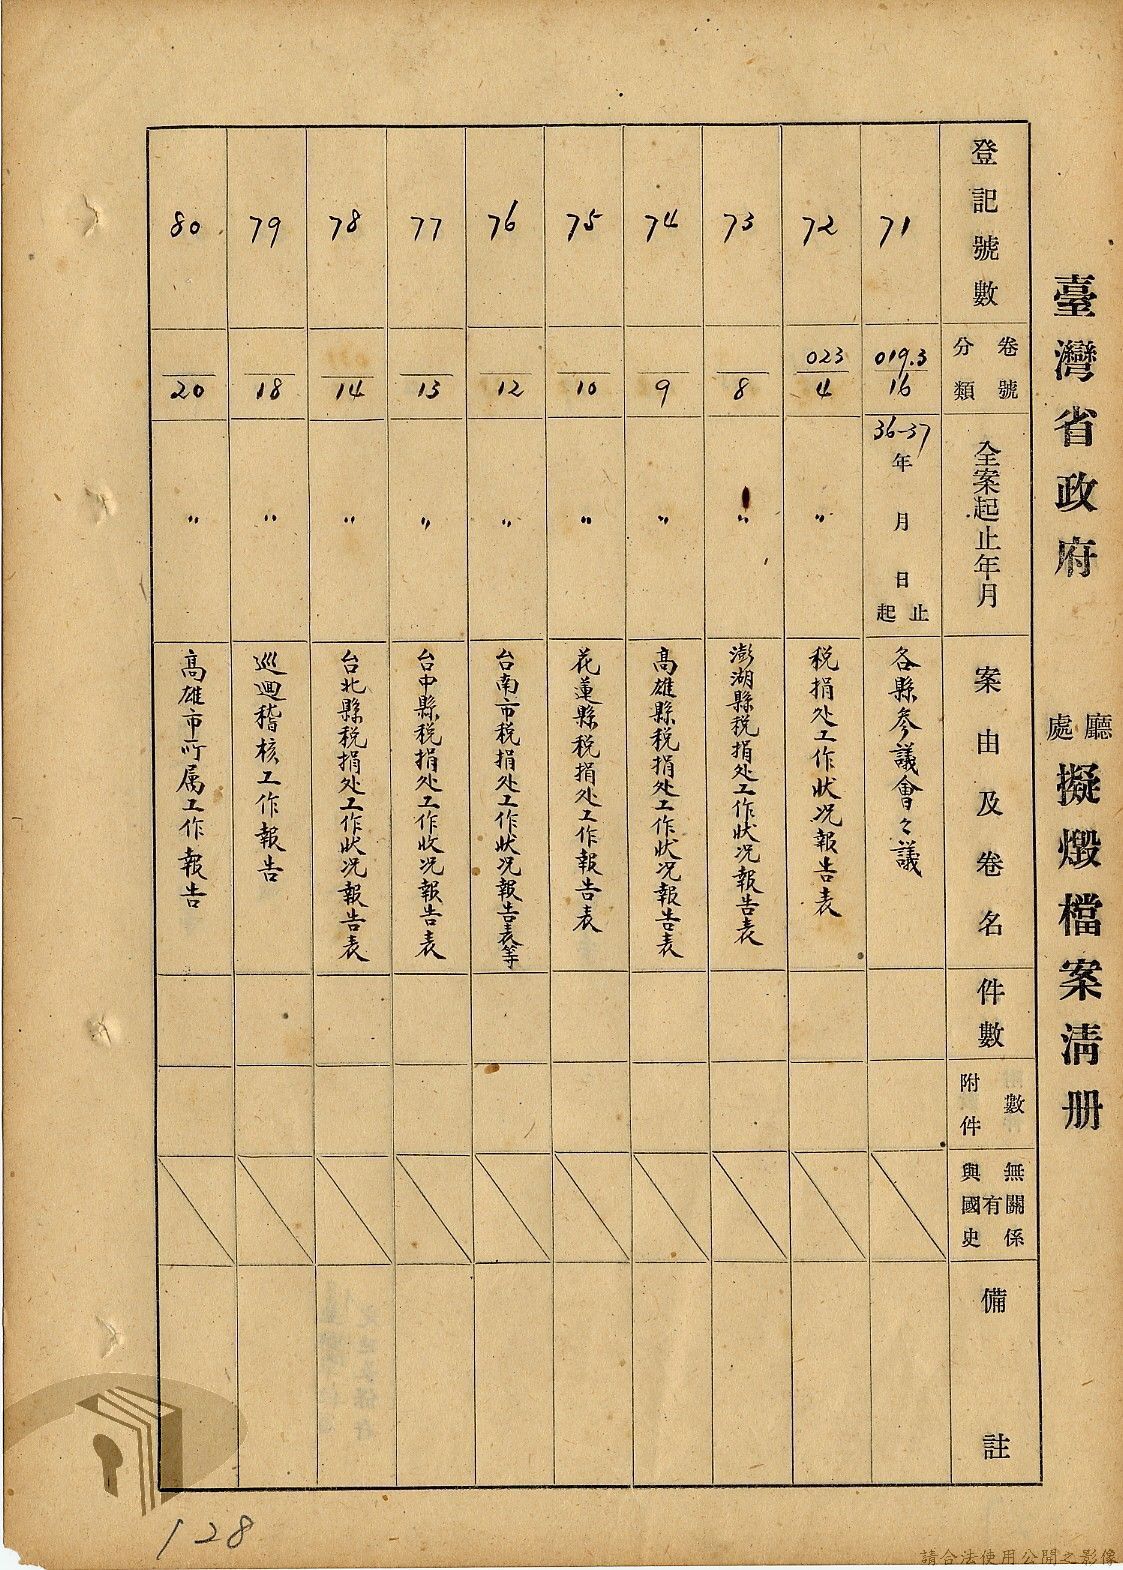 臺灣省政府 廳處 擬燬檔案清册
登記號數
分類卷號
全案起止年月
案由及卷名
件數
附件數
與國史有無關係
備註
71
019.3
16
36-37
年 月 日 起止
各縣參議會々議
72
023
4
〃
稅捐处工作狀况報告表
73
8
〃
澎湖縣稅捐处工作狀况報告表
74
9
〃
高雄縣稅捐处工作狀况報告表
75
10
〃
花蓮縣稅捐处工作報告表
76
12
〃
台南市稅捐处工作狀况報告表等
77
13
〃
台中縣稅捐处工作收况報告表
78
14
〃
台北縣稅捐处工作狀况報告表
79
18
〃
巡迴稽核工作報告
80
20
〃
高雄市所属工作報告
128
請合法使用公開之影像